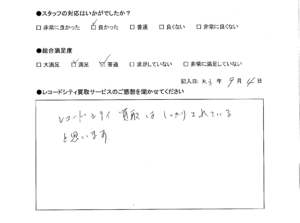 ●スタッフの対応はいかがでしたか？
□ 非常に良かった □ 良かった □ 普通 □ 良くない □ 非常に良くない
●総合満足度
□ 大満足 □ 満足 □ 普通 □ 満足していない □ 非常に満足していない
記入日: R3 年 9 月 4 日
●レコードシティ買取サービスのご感想を聞かせてください
レコードシティ 買取は しっかりされている
と思います